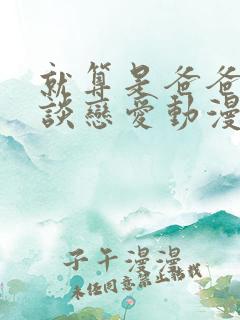 就算是爸爸
談戀愛動漫
子午漫漫
未經同意禁止轉載